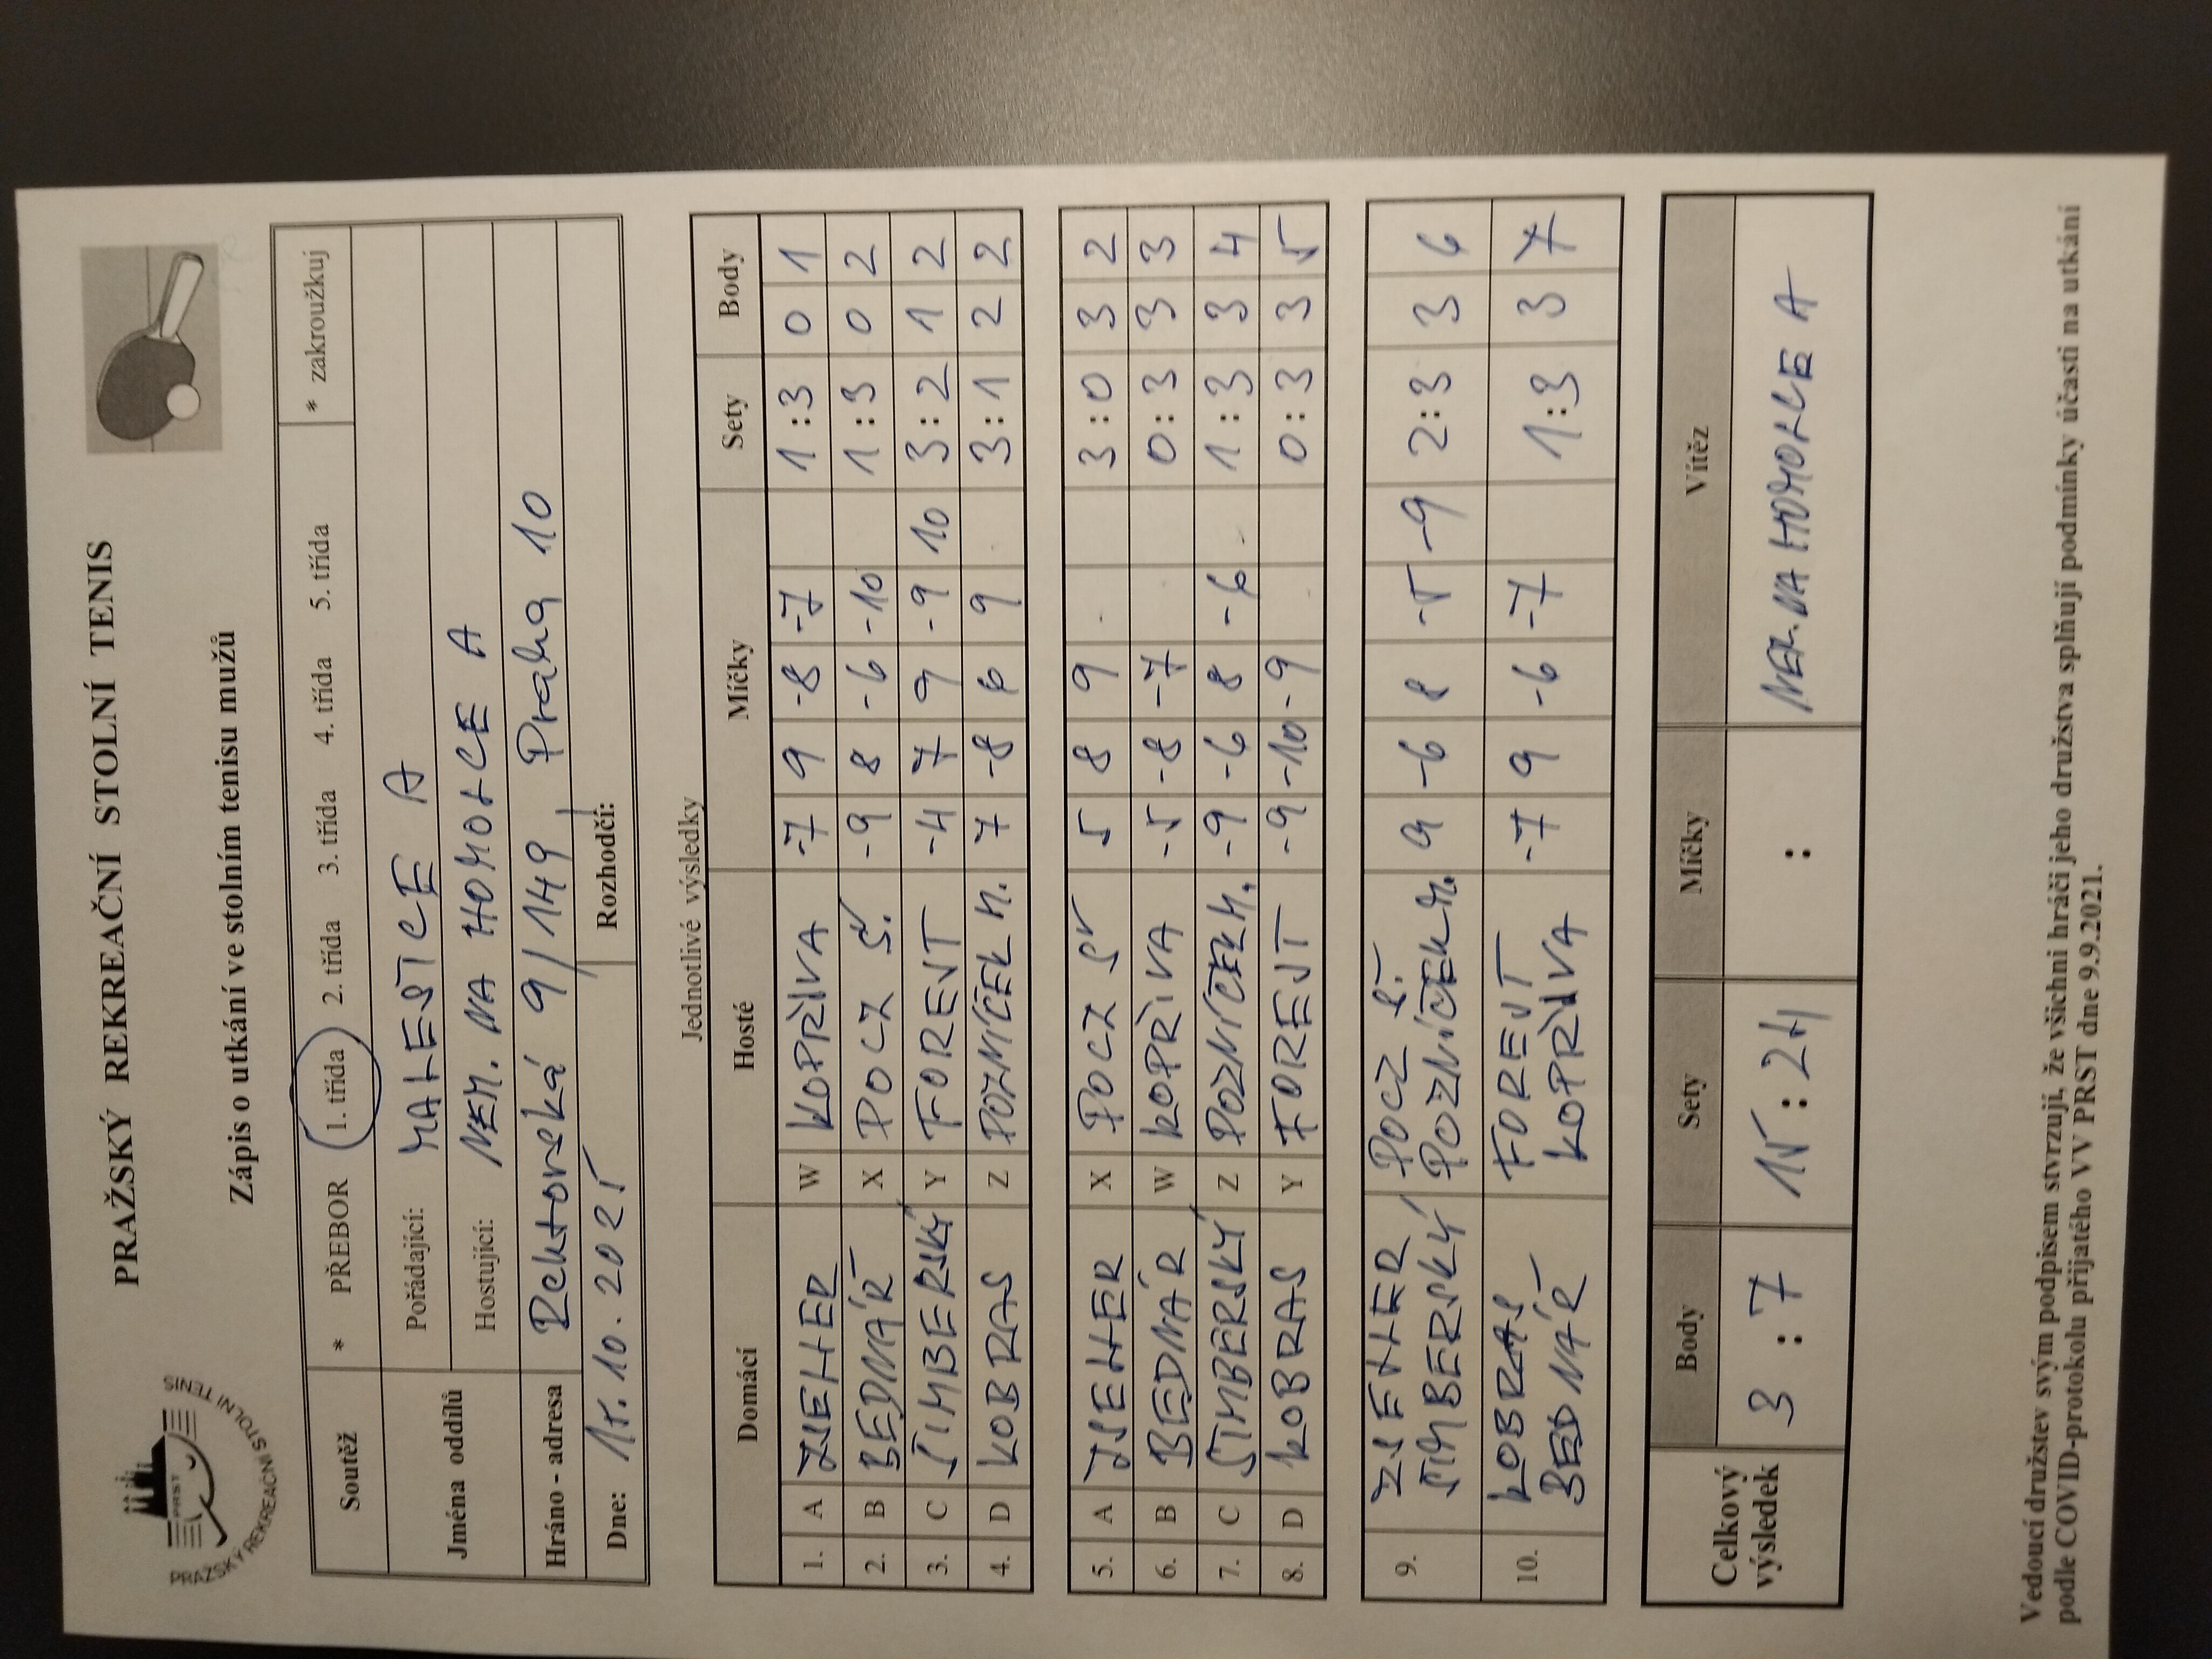 PRAŽSKÝ REKREAČNÍ STOLNÍ TENIS
PRAŽSKÝ REKREAČNÍ STOLNÍ TENIS
PRST
Zápis o utkání ve stolním tenisu mužů
Soutěž * PŘEBOR 1. třída 2. třída 3. třída 4. třída 5. třída * zakroužkuj
Jména oddílů
Pořádající: MALEŠICE A
Hostující: NEM. NA HOMOLCE A
Hráno - adresa Rektorská 9/149 Praha 10
Dne: 15.10.2025 Rozhodčí:
Jednotlivé výsledky
Domácí Hosté Míčky Sety Body
1. A W KOPŘIVA -7 9 -8 -7 1:3 0 1
2. B BEDNÁŘ X POCZ Š. -9 8 -6 -10 1:3 0 2
3. C ŠIMBERSKÝ Y FOREJT -4 7 9 -9 10 3:2 1 2
4. D KOBRAS Z POZNÍČEK M. 7 -8 6 9 3:1 2 2
5. A X POCZ Š 5 8 9 3:0 3 2
6. B BEDNÁR W KOPŘIVA -5 -8 -7 0:3 3 3
7. C ŠIMBERSKÝ Z POZNÍČEK M. -9 -6 8 -6 1:3 3 4
8. D KOBRAS Y FOREJT -9 -10 -9 0:3 3 5
9. POCZ Š.
ŠIMBERSKÝ POZNÍČEK M. 9 -6 8 -5 -9 2:3 3 6
10. KOBRAS FOREJT
BEDNÁŘ KOPŘIVA -7 9 -6 -7 1:3 3 7
Celkový výsledek Body Sety Míčky Vítěz
3:7 15:24 : NEM. NA HOMOLCE A
Vedoucí družstev svým podpisem stvrzují, že všichni hráči jeho družstva splňují podmínky účasti na utkání
podle COVID-protokolu přijatého VV PRST dne 9.9.2021.